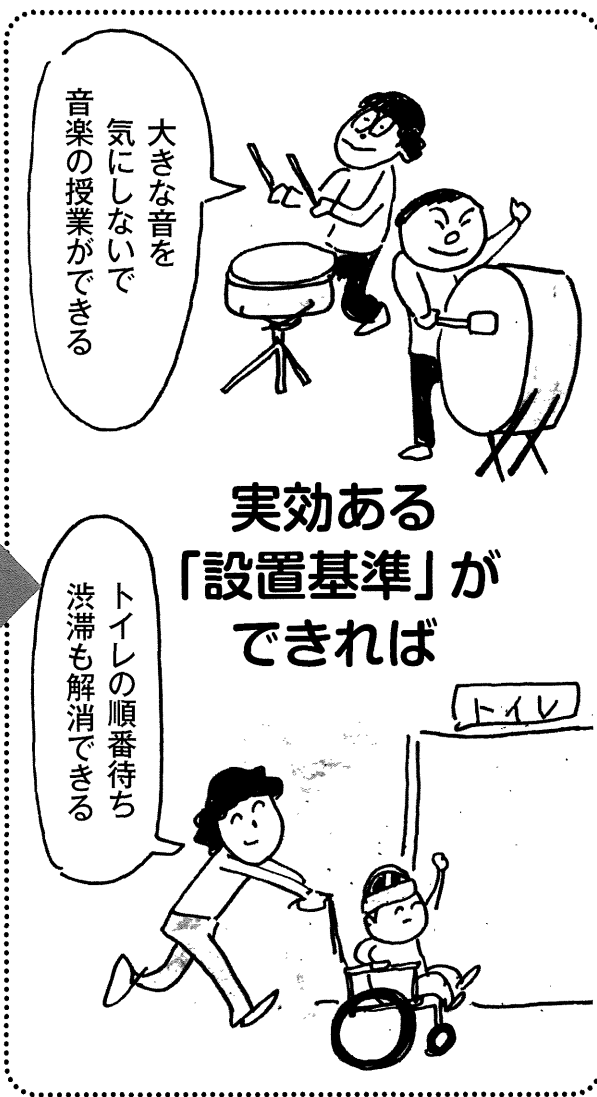 大きな音を
気にしないで
音楽の授業ができる
実効ある
「設置基準」が
できれば
トイレの順番待ち
渋滞も解消できる
トイレ